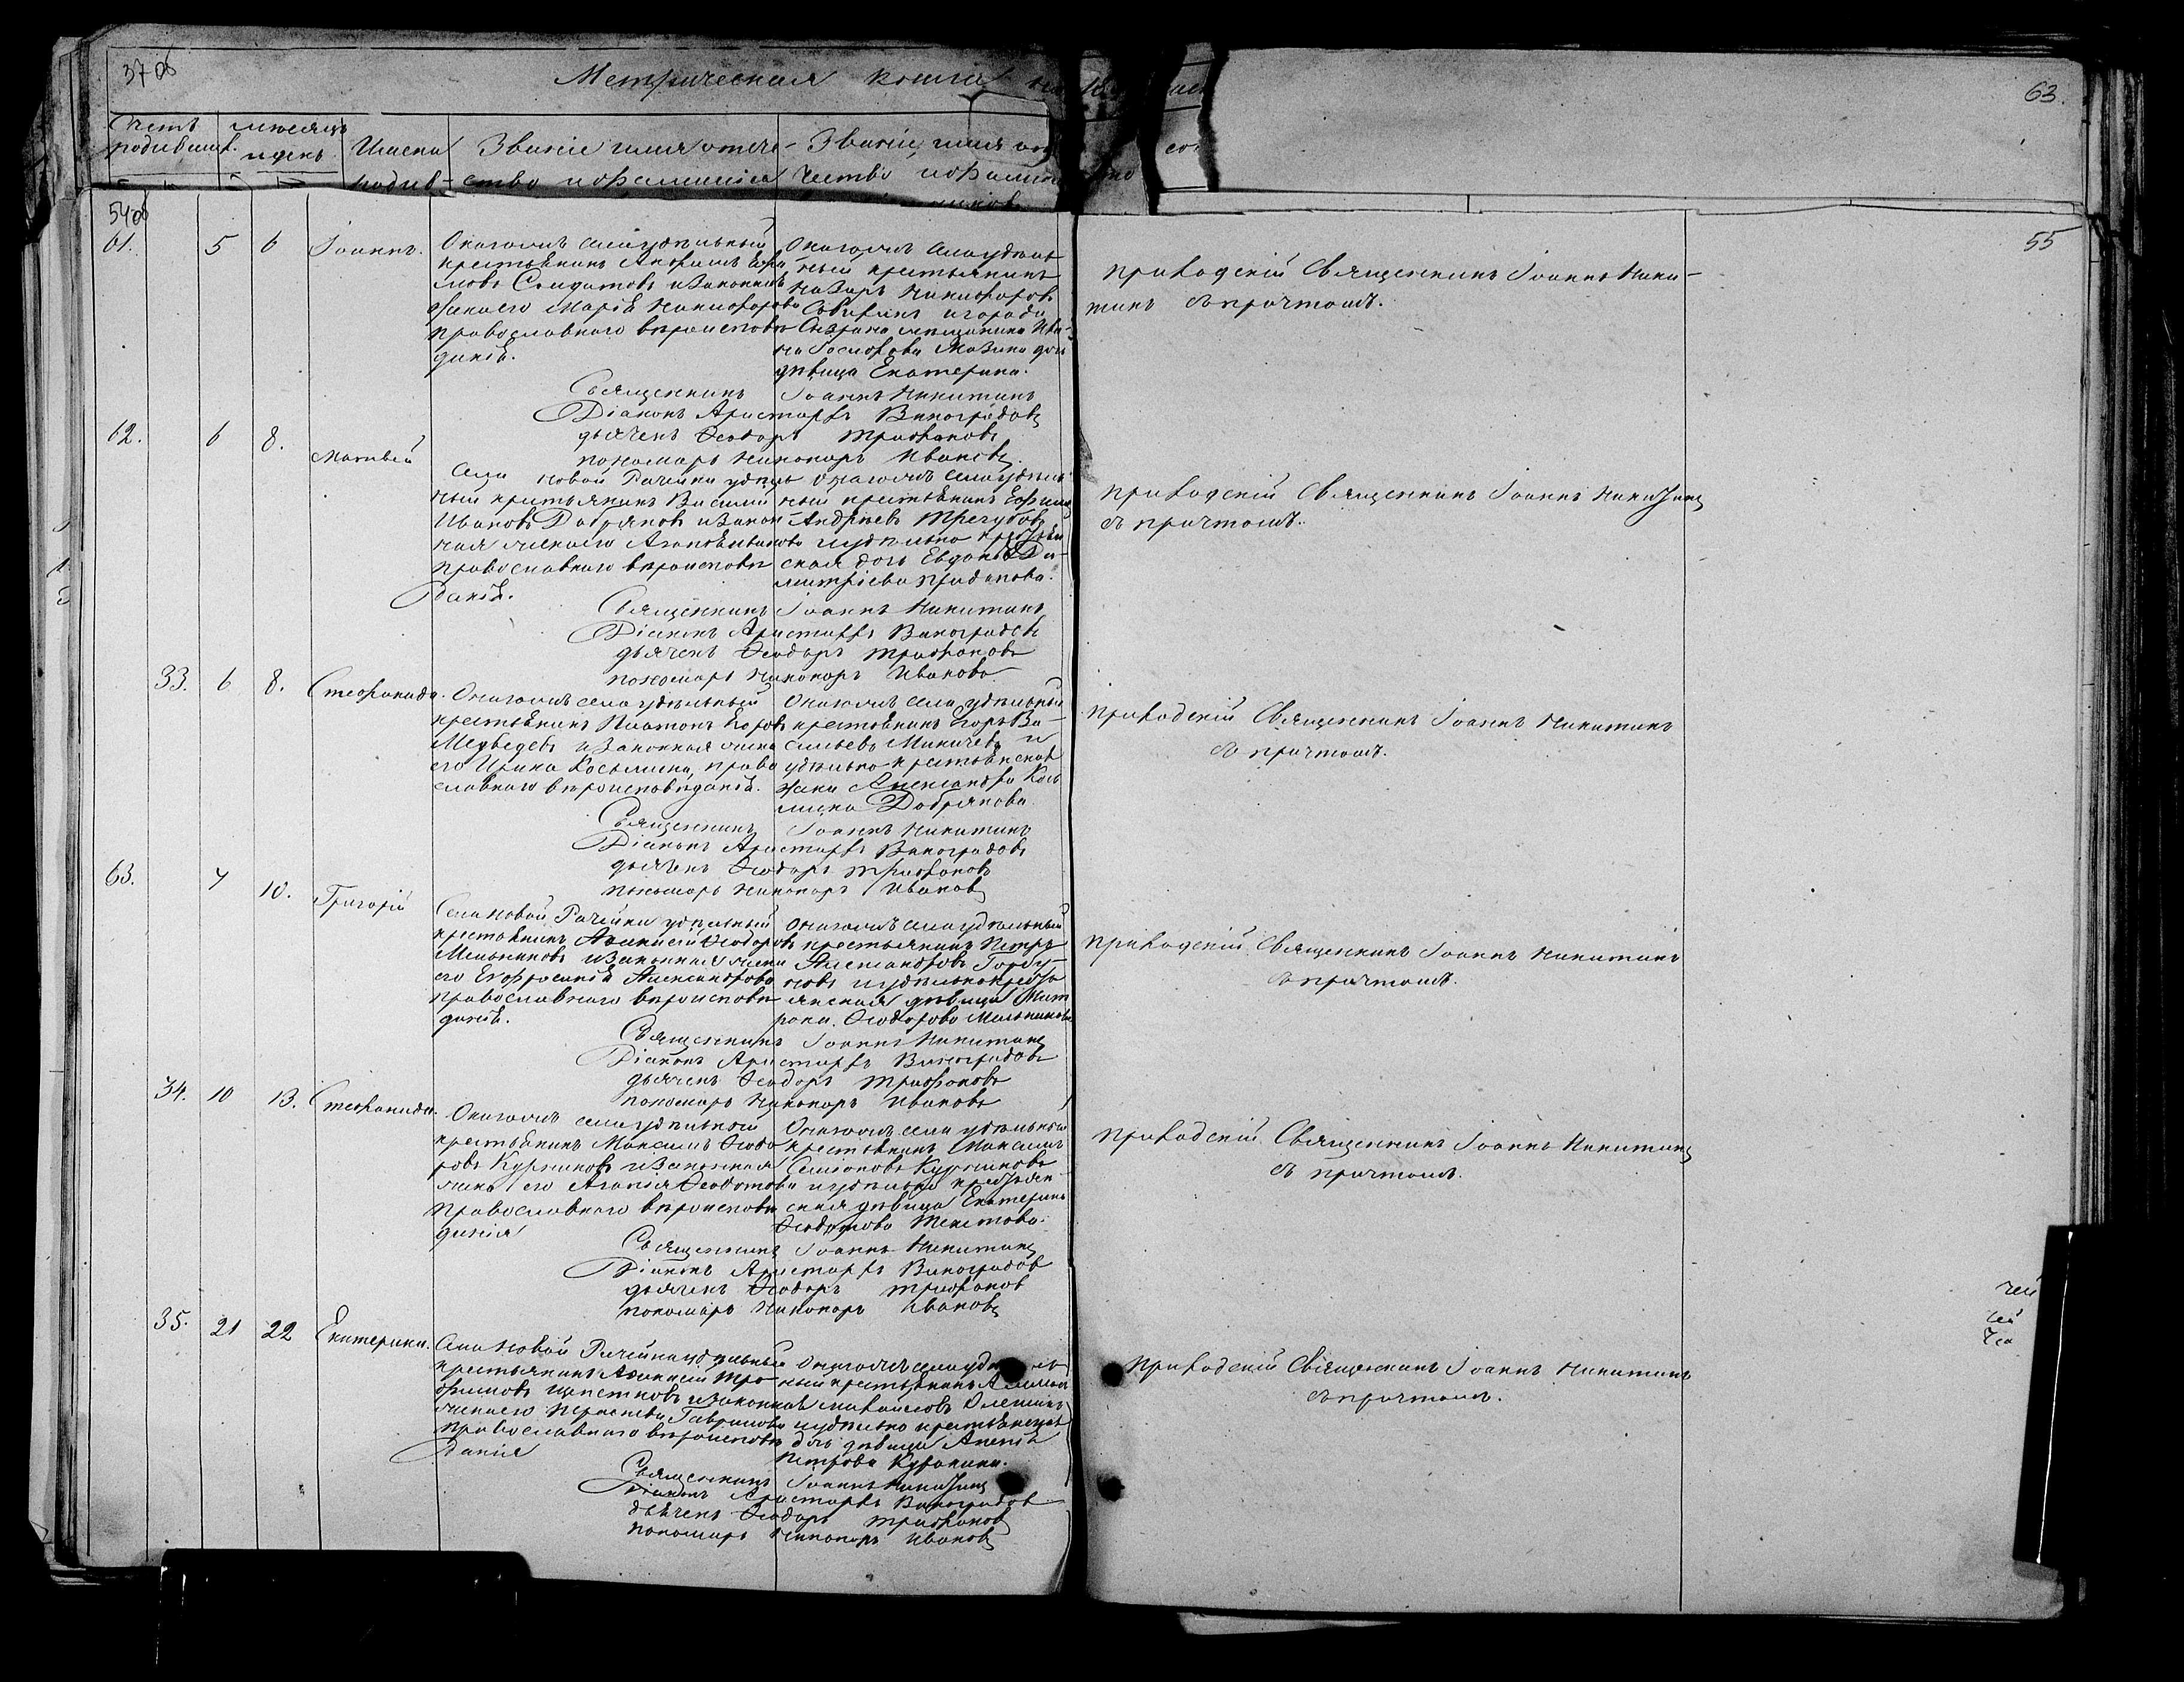 37 об
Метрическая книга на 18
63.
Счетъ родивших. месяцъ и день Имена родив- Званіе имя отче- ство и фамилія Званіе, имя от чество и фамил
54 об
55
61. 5 6 Іоаннъ.
Онагожъ села удѣльный
крестьянинъ
Солдатовъ и законная
жена его Марія Никифорова
православнаго вѣроисповѣ
данія.
Онагожъ села удѣль
ный крестьянинъ
Назаръ Никифоровъ
и города
Сызрана мещанина Ива-
на дочь
дѣвица Екатерина.
приходскій Священникъ Іоаннъ Ники-
тинъ съ причтомъ.
Священникъ Іоаннъ Никитинъ
Діаконъ Аристархъ Виноградовъ
дьячекъ Ѳеодоръ Трифоновъ
пономарь Никаноръ Ивановъ
62. 6 8. Матвей
Села Новой Рачейки удѣль
ный крестьянинъ Василий
Ивановъ Добряковъ и закон
ная жена его Иванова
православнаго вѣроисповѣ
данія.
онагожъ села удѣль
ный крестьянинъ Ефимъ
Андрѣевъ Трегубовъ
и удѣльно крестьян
ская дочь Евдокія Ди-
митріева
приходскій Священникъ Іоаннъ Никитинъ
съ причтомъ.
Священникъ Іоаннъ Никитинъ
Діаконъ Аристархъ Виноградовъ
дьячекъ Ѳеодоръ Трифоновъ
пономарь Никаноръ Ивановъ
33. 6 8. Стефанида.
Онагожъ села удѣльный
крестьянинъ Платонъ Егоровъ
Медведевъ и законная жена
его Ирина Косьмина, право
славнаго вѣроисповѣданія.
Онагожъ села удѣльный
крестьянинъ Егоръ Ва-
сильевъ и
удѣльно крестьянская
жена Александра Кось
мина Добрякова.
приходскій Священникъ Іоаннъ Никитинъ
съ причтомъ.
Священникъ Іоаннъ Никитинъ
Діаконъ Аристархъ Виноградовъ
дьячекъ Ѳеодоръ Трифоновъ
пономарь Никаноръ Ивановъ
63. 7 10. Григорій
Села Новой Рачейки удѣльный
крестьянинъ Ѳеодоровъ
Мельниковъ и законная жена
его Ефросинія Александрова
православнаго вѣроисповѣ
данія.
Онагожъ села удѣльный
крестьянинъ Петръ
Александровъ Горбу-
новъ и удѣльнокресть
янская дѣвица Мат
рона Ѳеодорова Мельникова
приходскій Священникъ Іоаннъ Никитинъ
съ причтомъ.
Священникъ Іоаннъ Никитинъ
Діаконъ Аристархъ Виноградовъ
дьячекъ Ѳеодоръ Трифоновъ
пономарь Никаноръ Ивановъ
34. 10 13. Стефанида.
Онагожъ села удѣльный
крестьянинъ Максимъ Ѳеодо
ровъ и законная
жена его Агапія Ѳеодотова
православнаго вѣроисповѣ
данія
Онагожъ села удѣльный
крестьянинъ Максимъ
Симоновъ
и удѣльно крестьян
ская дѣвица Екатерина
Ѳеодотова
приходскій Священникъ Іоаннъ Никитинъ
съ причтомъ.
Священникъ Іоаннъ Никитинъ
Діаконъ Аристархъ Виноградовъ
дьячекъ Ѳеодоръ Трифоновъ
пономарь Никаноръ Ивановъ
35. 21 22 Екатерина.
Села Новой Рачейки удѣльный
крестьянинъ Тро-
фимовъ и законная
жена его Гаврилова
православнаго вѣроисповѣ
данія
Онагожъ села удѣль
ный крестьянинъ
Михайловъ
и удѣльно крестьянская
дочь дѣвица
Петрова
приходскій Священникъ Іоаннъ Никитинъ
съ причтомъ.
Священникъ Іоаннъ Никитинъ
Діаконъ Аристархъ Виноградовъ
дьячекъ Ѳеодоръ Трифоновъ
пономарь Никаноръ Ивановъ